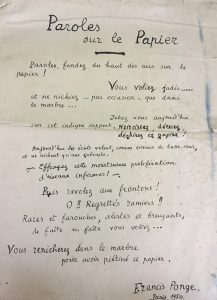 Paroles
sur le Papier
Paroles, fondez du haut des airs sur le
papier !
Vous voliez jadis...
et ne nichiez — par occasion — que dans
le marbre...
Jetez vous aujourd'hui
sur cet indigne support.
déchirer ce papier !
Aujourd'hui les écrits volent, comme oiseaux de basse-cour,
et ne nichent qu'une
— Effrayez cette monstrueuse prolifération
d'oiseaux informes ! —
Puis revolez aux frontons !
O !! Regrettés ramiers !!
Rares et farouches, alertes et bruyants,
de faîte en faîte vous volez...
Vous renicherez dans le marbre
pour avoir piétiné ce papier.
Francis Ponge,
Paris, 1950.